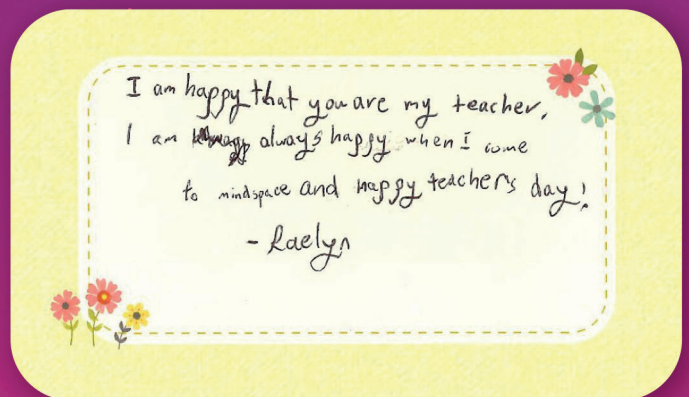 I am happy that you are my teacher.
I am always happy when I come
to mindspace and happy teacher's day!
- Raelyn